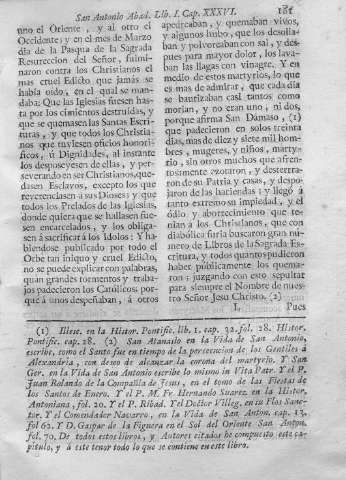 San Antonio Abad. Lib. I. Cap. XXXVI. 181
uno el Oriente, y al otro el
Occidente: y en el mes de Marzo
dia de la Pasqua de la Sagrada
Resurreccion del Señor, fulmi-
naron contra los Christianos el
mas cruel Edicto, que jamás se
habia oido, en el qual se man-
daba: Que las Iglesias fuesen has-
ta por los cimientos destruidas, y
que se quemasen las Santas Escri-
turas, y que todos los Christia-
nos que tuviesen oficios honori-
ficos, ú Dignidades, al instante
los desposeyesen de ellas, y per-
severando en ser Christianos, que-
dasen Esclavos, excepto los que
reverenciasen á sus Dioses: y que
todos los Prelados de las Iglesias,
donde quiera que se hallasen fue-
sen encarcelados, y los obliga-
sen á sacrificar á los Idolos: Y ha-
biendose publicado por todo el
Orbe tan iniquo y cruel Edicto,
no se puede explicar con palabras,
quan grandes tormentos y traba-
jos padecieron los Catolicos, por-
que á unos despeñaban, á otros
apedreaban, y quemaban vivos,
y algunos hubo, que los desolla-
ban y polvoreaban con sal, y des-
pues para mayor dolor, los lava-
ban las llagas con vinagre. Y en
medio de estos martyrios, lo que
es mas de admirar, que cada dia
se bautizaban casi tantos como
morian, y no eran uno, ni dos,
porque afirma San Damaso, (1)
que padecieron en solos treinta
dias, mas de diez y siete mil hom-
bres, mugeres, y niños, marty-
rio, sin otros muchos que afren-
tosamente azotaron, y desterra-
ron de su Patria y casas, y despo-
jaron de las haciendas: y llegó á
tanto extremo su impiedad, y el
ódio y aborrecimiento que te-
nian á los Christianos, que con
diabólica furia buscaron gran nú-
mero de Libros de la Sagrada Es-
critura, y todos quantos pudieron
haber públicamente los quema-
ron: juzgando con esto sepultar
para siempre el Nombre de nues-
tro Señor Jesu Christo. (2)
L Pues
(1) Illesc. en la Histor. Pontific. lib. 1. cap. 32. fol. 28. Histor.
Pontific. cap. 28. (2) San Atanasio en la Vida de San Antonio,
escribe, como el Santo fue en tiempo de la persecucion de los Gentiles á
Alexandria, con deseo de alcanzar la corona del martyrio. Y San
Ger. en la Vida de San Antonio escribe lo mismo in Vita Patr. Y el P.
Juan Rolando de la Compañia de Jesus, en el tomo de las Fiestas de
los Santos de Enero. Y el P. M. Fr. Hernando Suarez en la Histor.
Antoniana, fol. 20. Y el P. Ribad. Y el Doctor Villeg. en su Flos Sanc-
tor. Y el Comendador Navarro, en la Vida de San Anton. cap. 13.
fol 62. Y D. Gaspar de la Figuera en el Sol del Oriente San Anton.
fol. 70. De todos estos libros, y Autores citados he compuesto este ca-
pitulo, y á este tenor todo lo que se contiene en este libro.